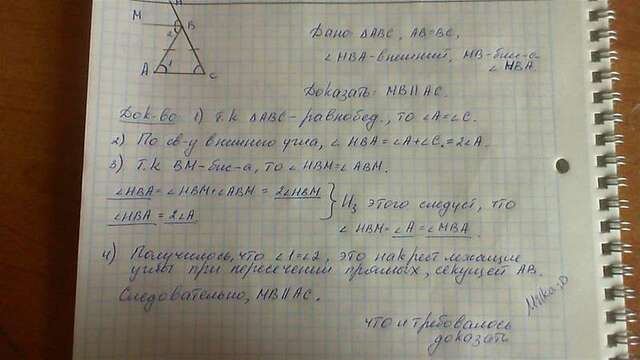 H
M
B
2
A
1
C
Дано: ΔABC, AB=BC,
∠HBA-внешний, MB-бис-а
∠HBA.
Доказать: MB||AC.
Док-во 1) Т.к ΔABC-равнобед., то ∠A=∠C.
2) По св-у внешнего угла, ∠HBA=∠A+∠C=2∠A.
3) Т.к BM-бис-а, то ∠HBM=∠ABM.
∠HBA=∠HBM+∠ABM=2∠HBM
∠HBA=2∠A
} Из этого следует, что
∠HBM=∠A=∠MBA.
4) Получилось, что ∠1=∠2, это накрест лежащие
углы при пересечении прямых, секущей AB.
Следовательно, MB||AC.
что и требовалось
доказать